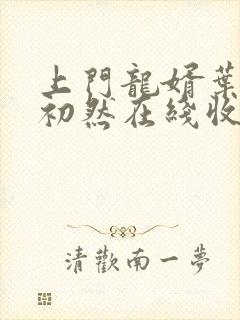 上門龍婿葉
初然在綫收
清歡南一夢